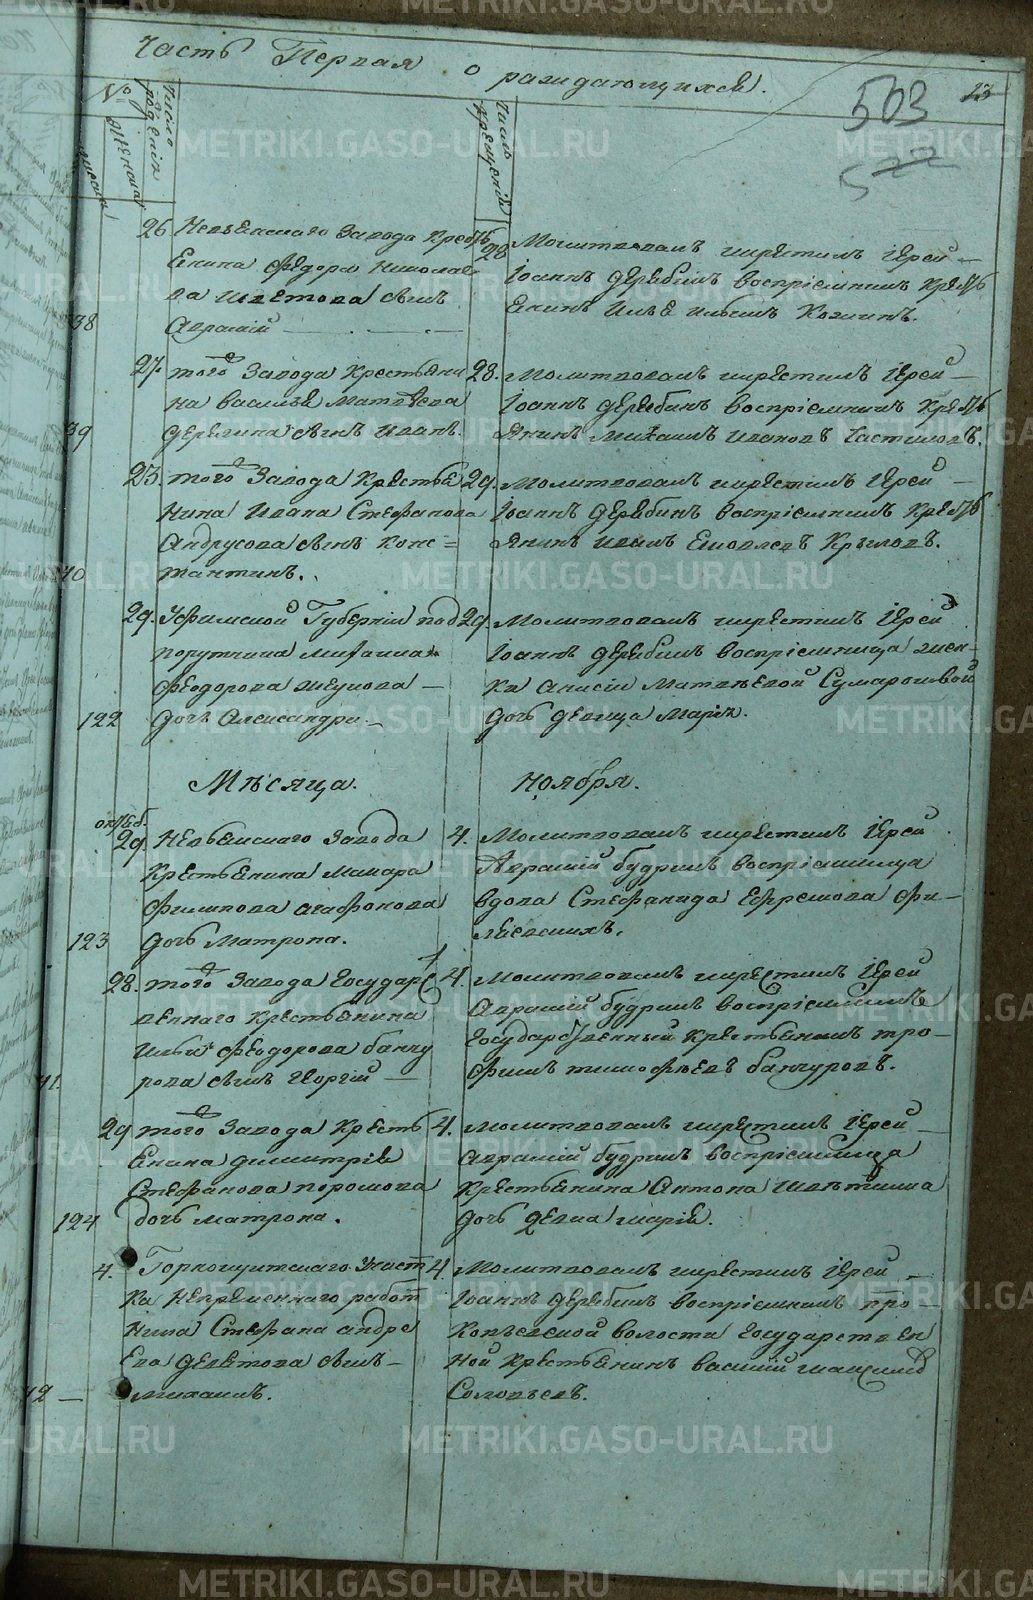 Часть Первая о раждающихся.
503
13
522
№
мужеска
женска
Число рожденія
Число крещенія
38
26
Невьянскаго Завода Кресть
янина Федора Николае
ва Цветова сынъ
Аврамій
28
Молитвовалъ и крестилъ Іерей
Іоаннъ Дерябинъ воспріемникъ Кресть
янинъ
39
27.
того Завода Крестьяни
на Василья Матвеева
Дерягина сынъ Иванъ.
28.
Молитвовалъ и крестилъ Іерей
Іоаннъ Дерябинъ воспріемникъ Кресть
янинъ Михаилъ Ивановъ
40
23.
того Завода Крестья
нина Ивана Стефанова
Андрусова сынъ Конс=
тантинъ.
29.
Молитвовалъ и крестилъ Іерей
Іоаннъ Дерябинъ воспріемникъ Кресть
янинъ Крыловъ.
122
29.
Уфимской Губерніи под
порутчика Михаила
Феодорова
дочь Александра
29.
Молитвовалъ и крестилъ Іерей
Іоаннъ Дерябинъ воспріемница
Матвеевой Сумароковой
дочь девица Марія.
Мѣсяца. Ноября.
123
октяб.
29.
Невьянскаго Завода
Крестьянина Макара
Филипова Агафонова
дочь Матрона.
4.
Молитвовалъ и крестилъ Іерей
Аврамій Будринъ воспріемница
вдова Стефанида Ефремова
41.
28.
того Завода Государст
веннаго Крестьянина
Ильи Феодорова Банчу
рова сынъ Георгій
4.
Молитвовалъ и крестилъ Іерей
Аврамій Будринъ воспріемникъ
Государственный Крестьянинъ Тро-
фимъ Тимофеевъ Банчуровъ.
124
29
того Завода Кресть
янина Димитрія
Стефанова Порошова
дочь Матрона.
4.
Молитвовалъ и крестилъ Іерей
Аврамій Будринъ воспріемница
Крестьянина Антона
дочь девка Марія.
42
4.
Горнощитскаго Участ
ка Непременнаго работ
ника Стефана Андре
ева Деветова сынъ
Михаилъ.
4.
Молитвовалъ и крестилъ Іерей
Іоаннъ Дерябинъ воспріемникъ Про-
копьевской волости Государствен
ной Крестьянинъ Василій
Соловьевъ.
METRIKI.GASO-URAL.RU